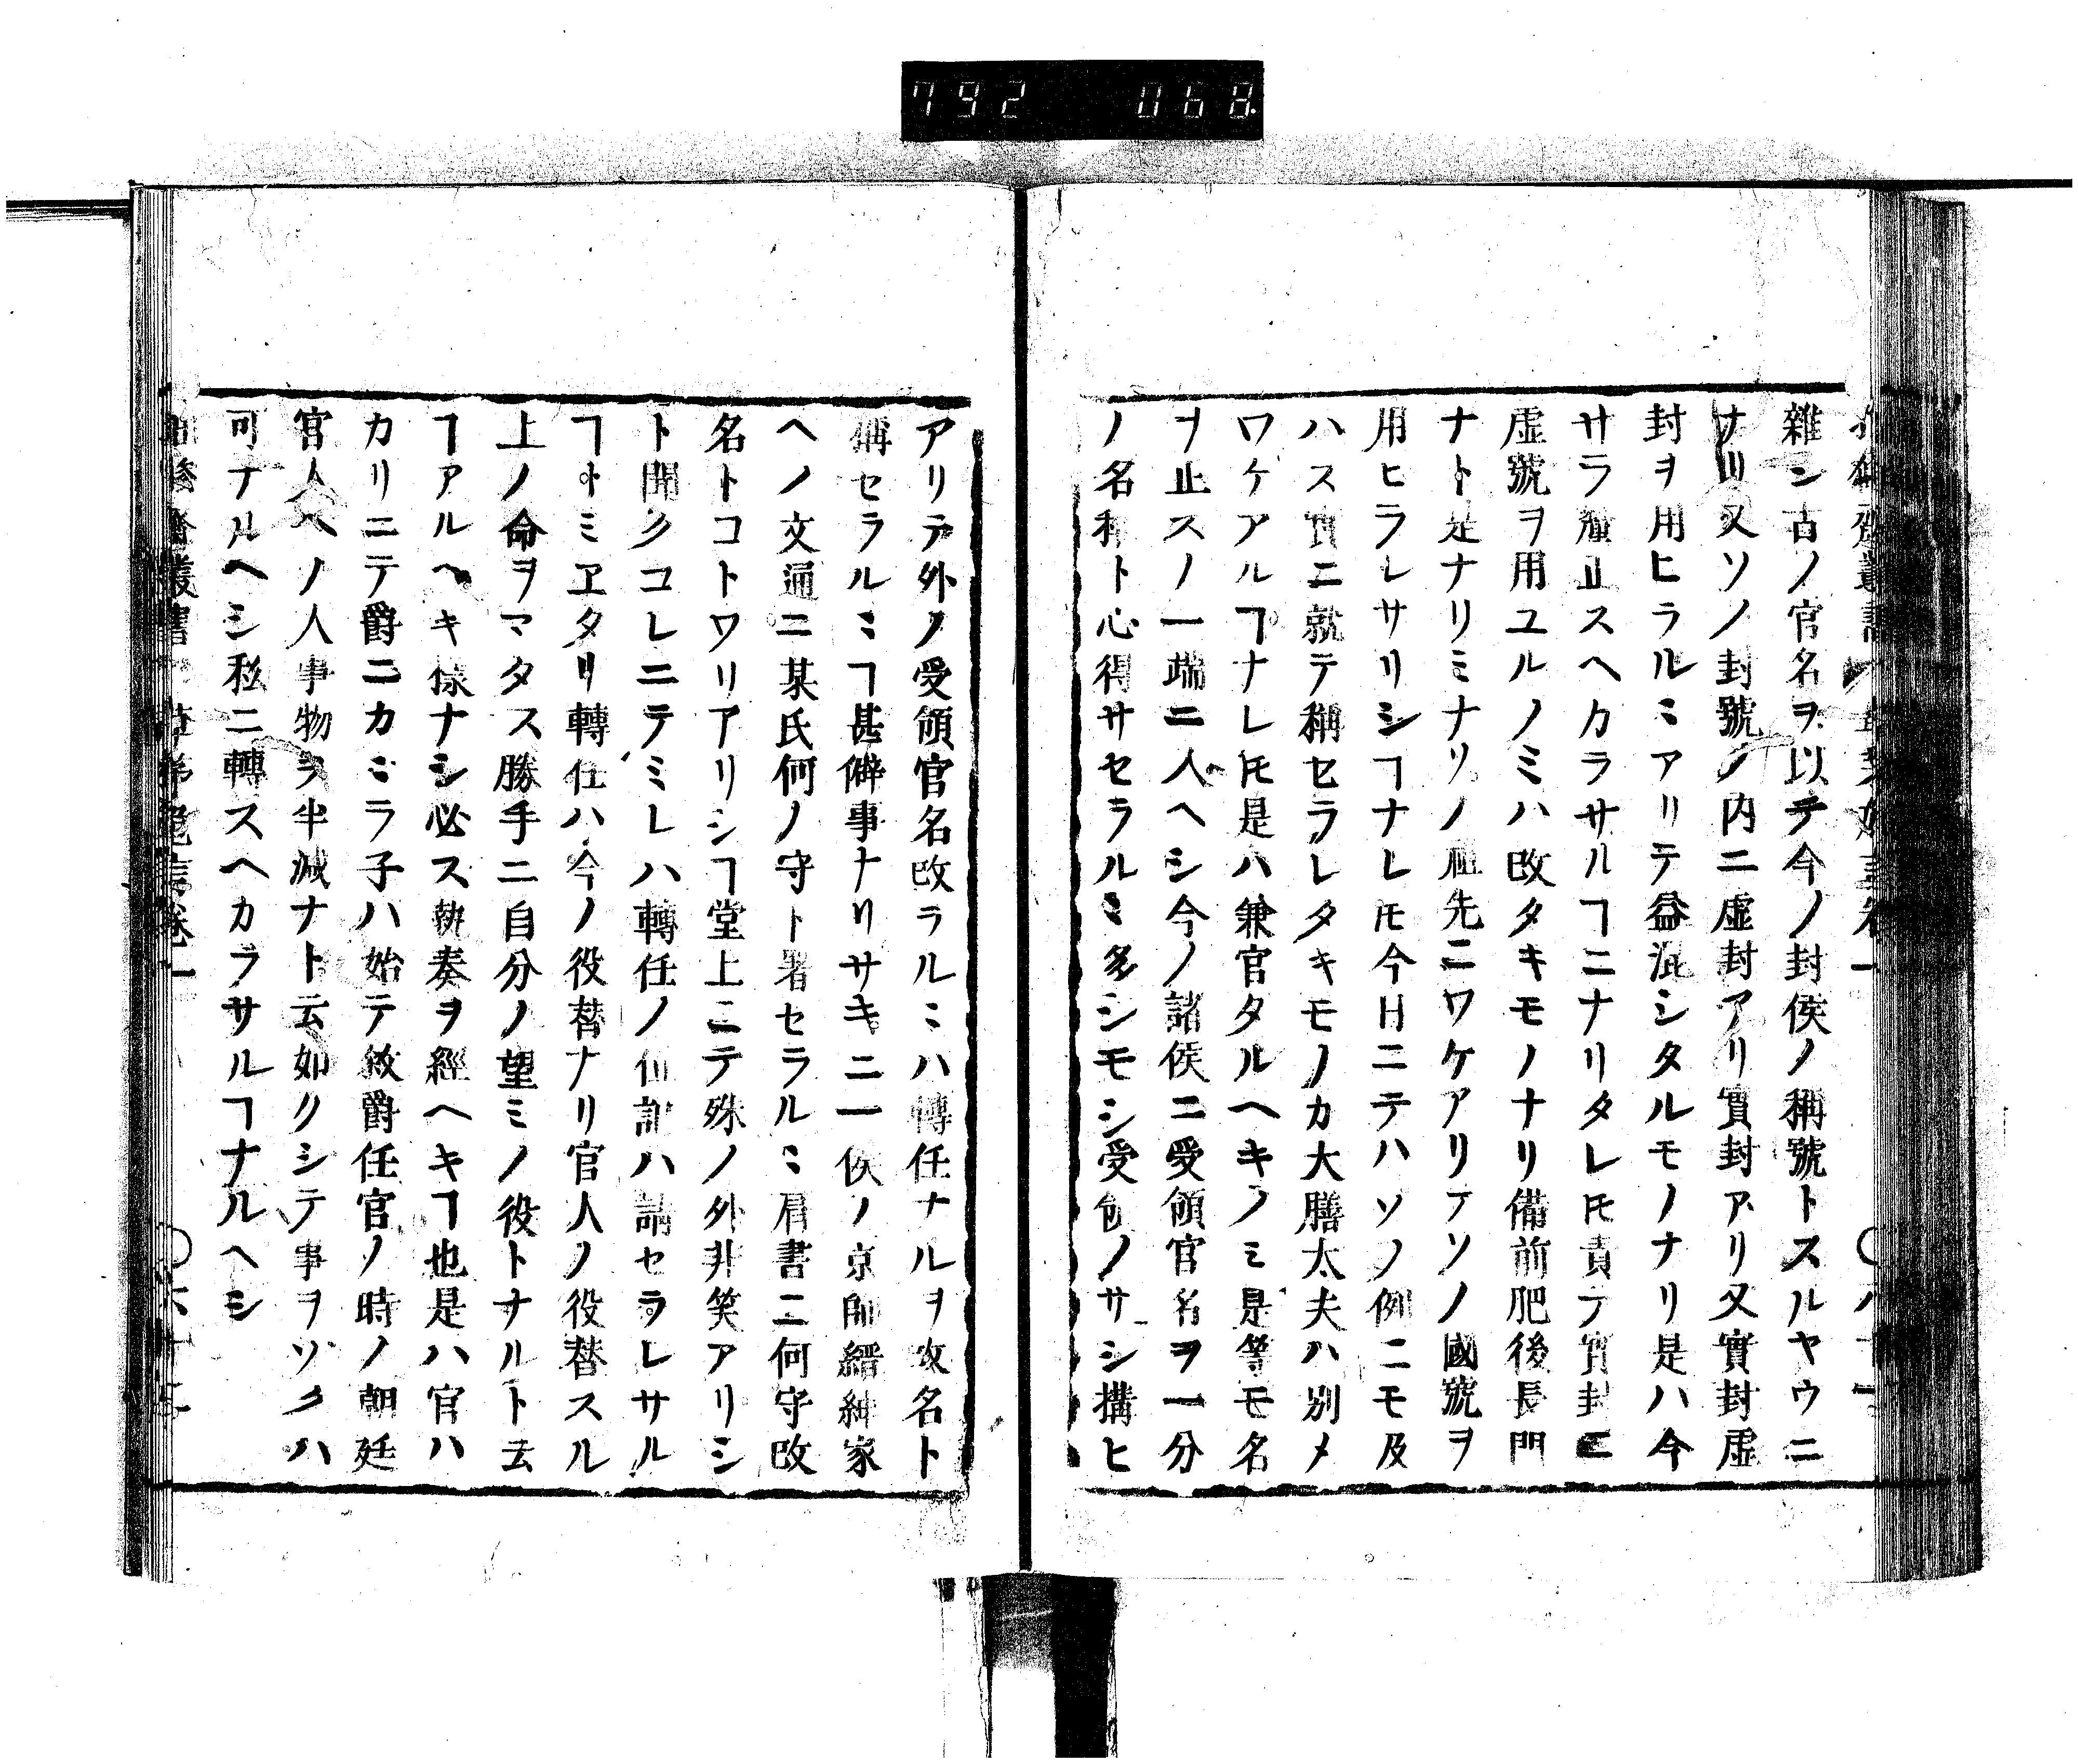 792 068
雜シ古ノ官名ヲ以テ今ノ封侯ノ稱號トスルヤウニ
ナリ又ソノ封號ノ内ニ虚封アリ實封アリ又實封虚
封ヲ用ヒラルミアリテ益混シタルモノナリ是ハ今
サラ癈止スヘカラサルヿニナリタレ𪜈責テ實封ニ
虚號ヲ用ユルノミハ改タキモノナリ備前肥後長門
ナト是ナリミナソノ祖先ニワケアリテソノ國號ヲ
用ヒラレサリシヿナレ𪜈今日ニテハソノ例ニモ及
ハス實ニ就テ稱セラレタキモノカ大膳太夫ハ別メ
ワケアルヿナレ𪜈是ハ兼官タルヘキノミ是等モ名
ヲ止スノ一端ニ入ヘシ今ノ諸侯ニ受領官名ヲ一分
ノ名ト心得サセラルミ多シモシ受領ノサシ構ヒ
アリテ外ノ受領官名改ラルミハ轉任ナルヲ改名ト
稱セラルミヿ甚僻事ナリサキニ一侯ノ京師縉紳家
ヘノ文通ニ某氏何ノ守ト署セラルミ肩書ニ何守改
名トコトワリアリシヿ堂上ニテ殊ノ外非笑アリシ
ト聞クコレニテミレハ轉任ノ ハ講セラレサル
ヿトミヱタリ轉任ハ今ノ役替ナリ官人ノ役替スル
上ノ命ヲマタス勝手ニ自分ノ望ミノ役トナルト云
ヿアルヘキ様ナシ必ス執奏ヲ經ヘキヿ也是ハ官ハ
カリニテ爵ニカミラ子ハ始テ敘爵任官ノ時ノ朝廷
官人ヘノ人事物ヲ半減ナト云如クシテ事ヲソクハ
可ナルヘシ私ニ轉スヘカラサルヿナルヘシ